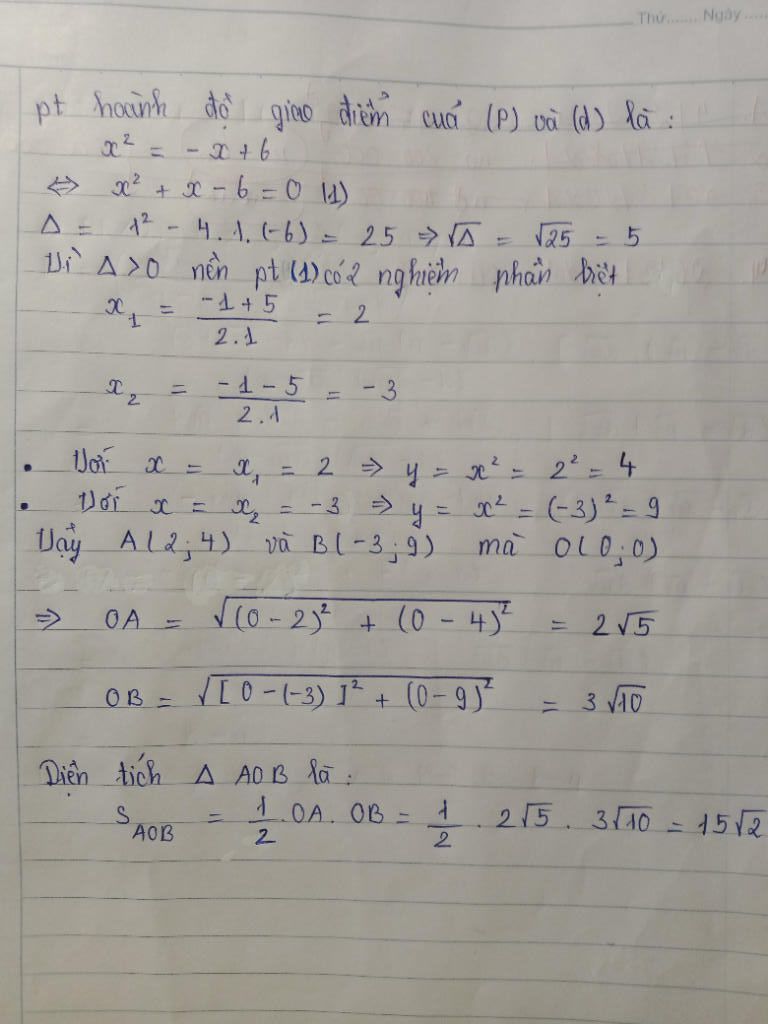 Thứ....... Ngày.....
pt hoành độ giao điểm cuả (P) và (d) là :
x² = - x + 6
⇔ x² + x - 6 = 0 (1)
Δ = 1² - 4 . 1 . (-6) = 25 ⇒ √Δ = √25 = 5
Vì Δ > 0 nên pt (1) có 2 nghiệm phân biệt
x₁ = (-1 + 5)/(2.1) = 2
x₂ = (-1 - 5)/(2.1) = -3
• Với x = x₁ = 2 ⇒ y = x² = 2² = 4
• Với x = x₂ = -3 ⇒ y = x² = (-3)² = 9
Vậy A(2;4) và B(-3;9) mà O(0;0)
⇒ OA = √((0 - 2)² + (0 - 4)²) = 2√5
OB = √([0 - (-3)]² + (0 - 9)²) = 3√10
Diện tích Δ AOB là :
S_AOB = 1/2 . OA . OB = 1/2 . 2√5 . 3√10 = 15√2